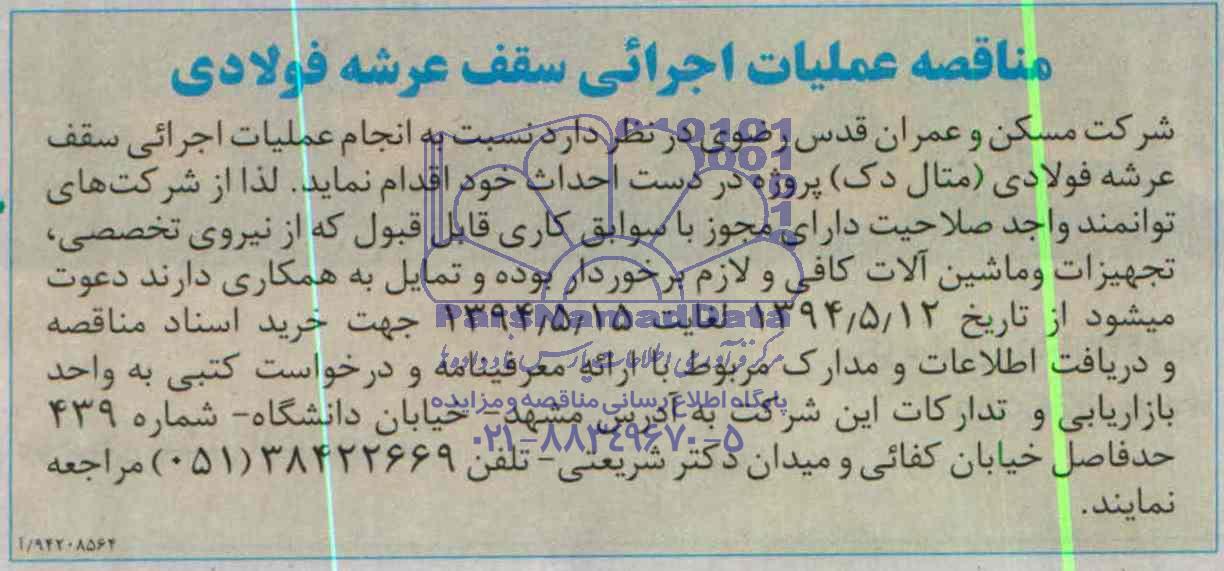 مناقصه عملیات اجرائی سقف عرشه فولادی
شرکت مسکن و عمران قدس رضوی در نظر دارد نسبت به انجام عملیات اجرائی سقف
عرشه فولادی (متال دک) پروژه در دست احداث خود اقدام نماید. لذا از شرکت‌های
توانمند واجد صلاحیت دارای مجوز با سوابق کاری قابل قبول که از نیروی تخصصی،
تجهیزات وماشین آلات کافی و لازم برخوردار بوده و تمایل به همکاری دارند دعوت
میشود از تاریخ ۱۳۹۴/۵/۱۲ لغایت ۱۳۹۴/۵/۱۵ جهت خرید اسناد مناقصه
و دریافت اطلاعات و مدارک مربوط با ارائه معرفینامه و درخواست کتبی به واحد
بازاریابی و تدارکات این شرکت به آدرس مشهد- خیابان دانشگاه- شماره ۴۳۹
حدفاصل خیابان کفائی و میدان دکتر شریعتی- تلفن ۳۸۴۲۲۶۶۹(۰۵۱) مراجعه
نمایند.
۹۴۲۰۸۵۶۴/آ
ParsNamadData
مرکز فرآوری اطلاعات پارس نماد داده‌ها
پایگاه اطلاع رسانی مناقصه و مزایده
۰۲۱-۸۸۳۴۹۶۷۰-۵